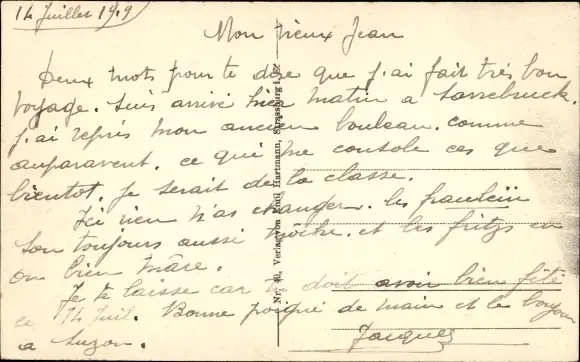 14 Juillet 1919
Mon vieux Jean
Deux mots pour te dire que j'ai fait très bon
voyage. Suis arrivé hier matin a Sarrebruck.
j'ai repris mon ancien bouleau. comme
auparavent. ce qui me console ces que
bientot. je serait de la classe.
Ici rien n'as changer. les fraulein
son toujours aussi moche. et les fritzs en
on bien mâre.
Je te laisse car tu doit avoir bien fêté
ce 14 Juil. Bonne poigné de main et le bonjour
a Suzon. Jacques
Nr. 49, Verlag von Emil Hartmann, Strassburg i. E.